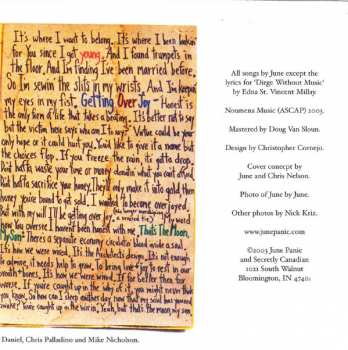 It's where I want to belong. It's where I been lookin'
for you since I get young. And I found trumpets in
the floor, And I'm finding I've been married before,
So I'm sewin the slits in my wrists, And I'm keeping
my eyes in my fist, Getting Over Joy - Honest is
the only form of life that takes a beating. It's better not to say
but the victim here says who am I to say? Virtue could be your
only hope or it could hurt you. You'd like to give it a name but
the choices flop. If you freeze the rain, it's gotta drop.
And hatta waste your time or money doubtin what you can't afford
And hatta sacrifice your honey, They'll only make it into gold then
honey you're bound to get sold, I wanted to become overjoyed
but with my will I'll be getting over joy. My word
now you oversee I haven't been honest with me, That's The Moon,
My Son - There's a separate economy circulatin blood inside a soul,
It's how we were wired, It's the Architect's design, It's not enough
to admire, it needs help to grow, to bring love + joy to rest in our
mouth + bones, It's how we were wired, It for better then for
worse. If you're caught up in the why of it, you might never than
you know, So how can I sleep another day now that my soul has yawned
awake? You're caught up in the war in, Yeah, but that's the moon, my son,
Daniel, Chris Palladino and Mike Nicholson.
All songs by June except the
lyrics for 'Dirge Without Music'
by Edna St. Vincent Millay.
Noumens Music (ASCAP) 2003.
Mastered by Doug Van Sloun.
Design by Christopher Cornejo.
Cover concerpt by
June and Chris Nelson.
Photo of June by June.
Other photos by Nick Kriz.
www.junepanic.com
©2003 June Panic
and Secretly Canadian
1021 South Walnut
Bloomington, IN 47401